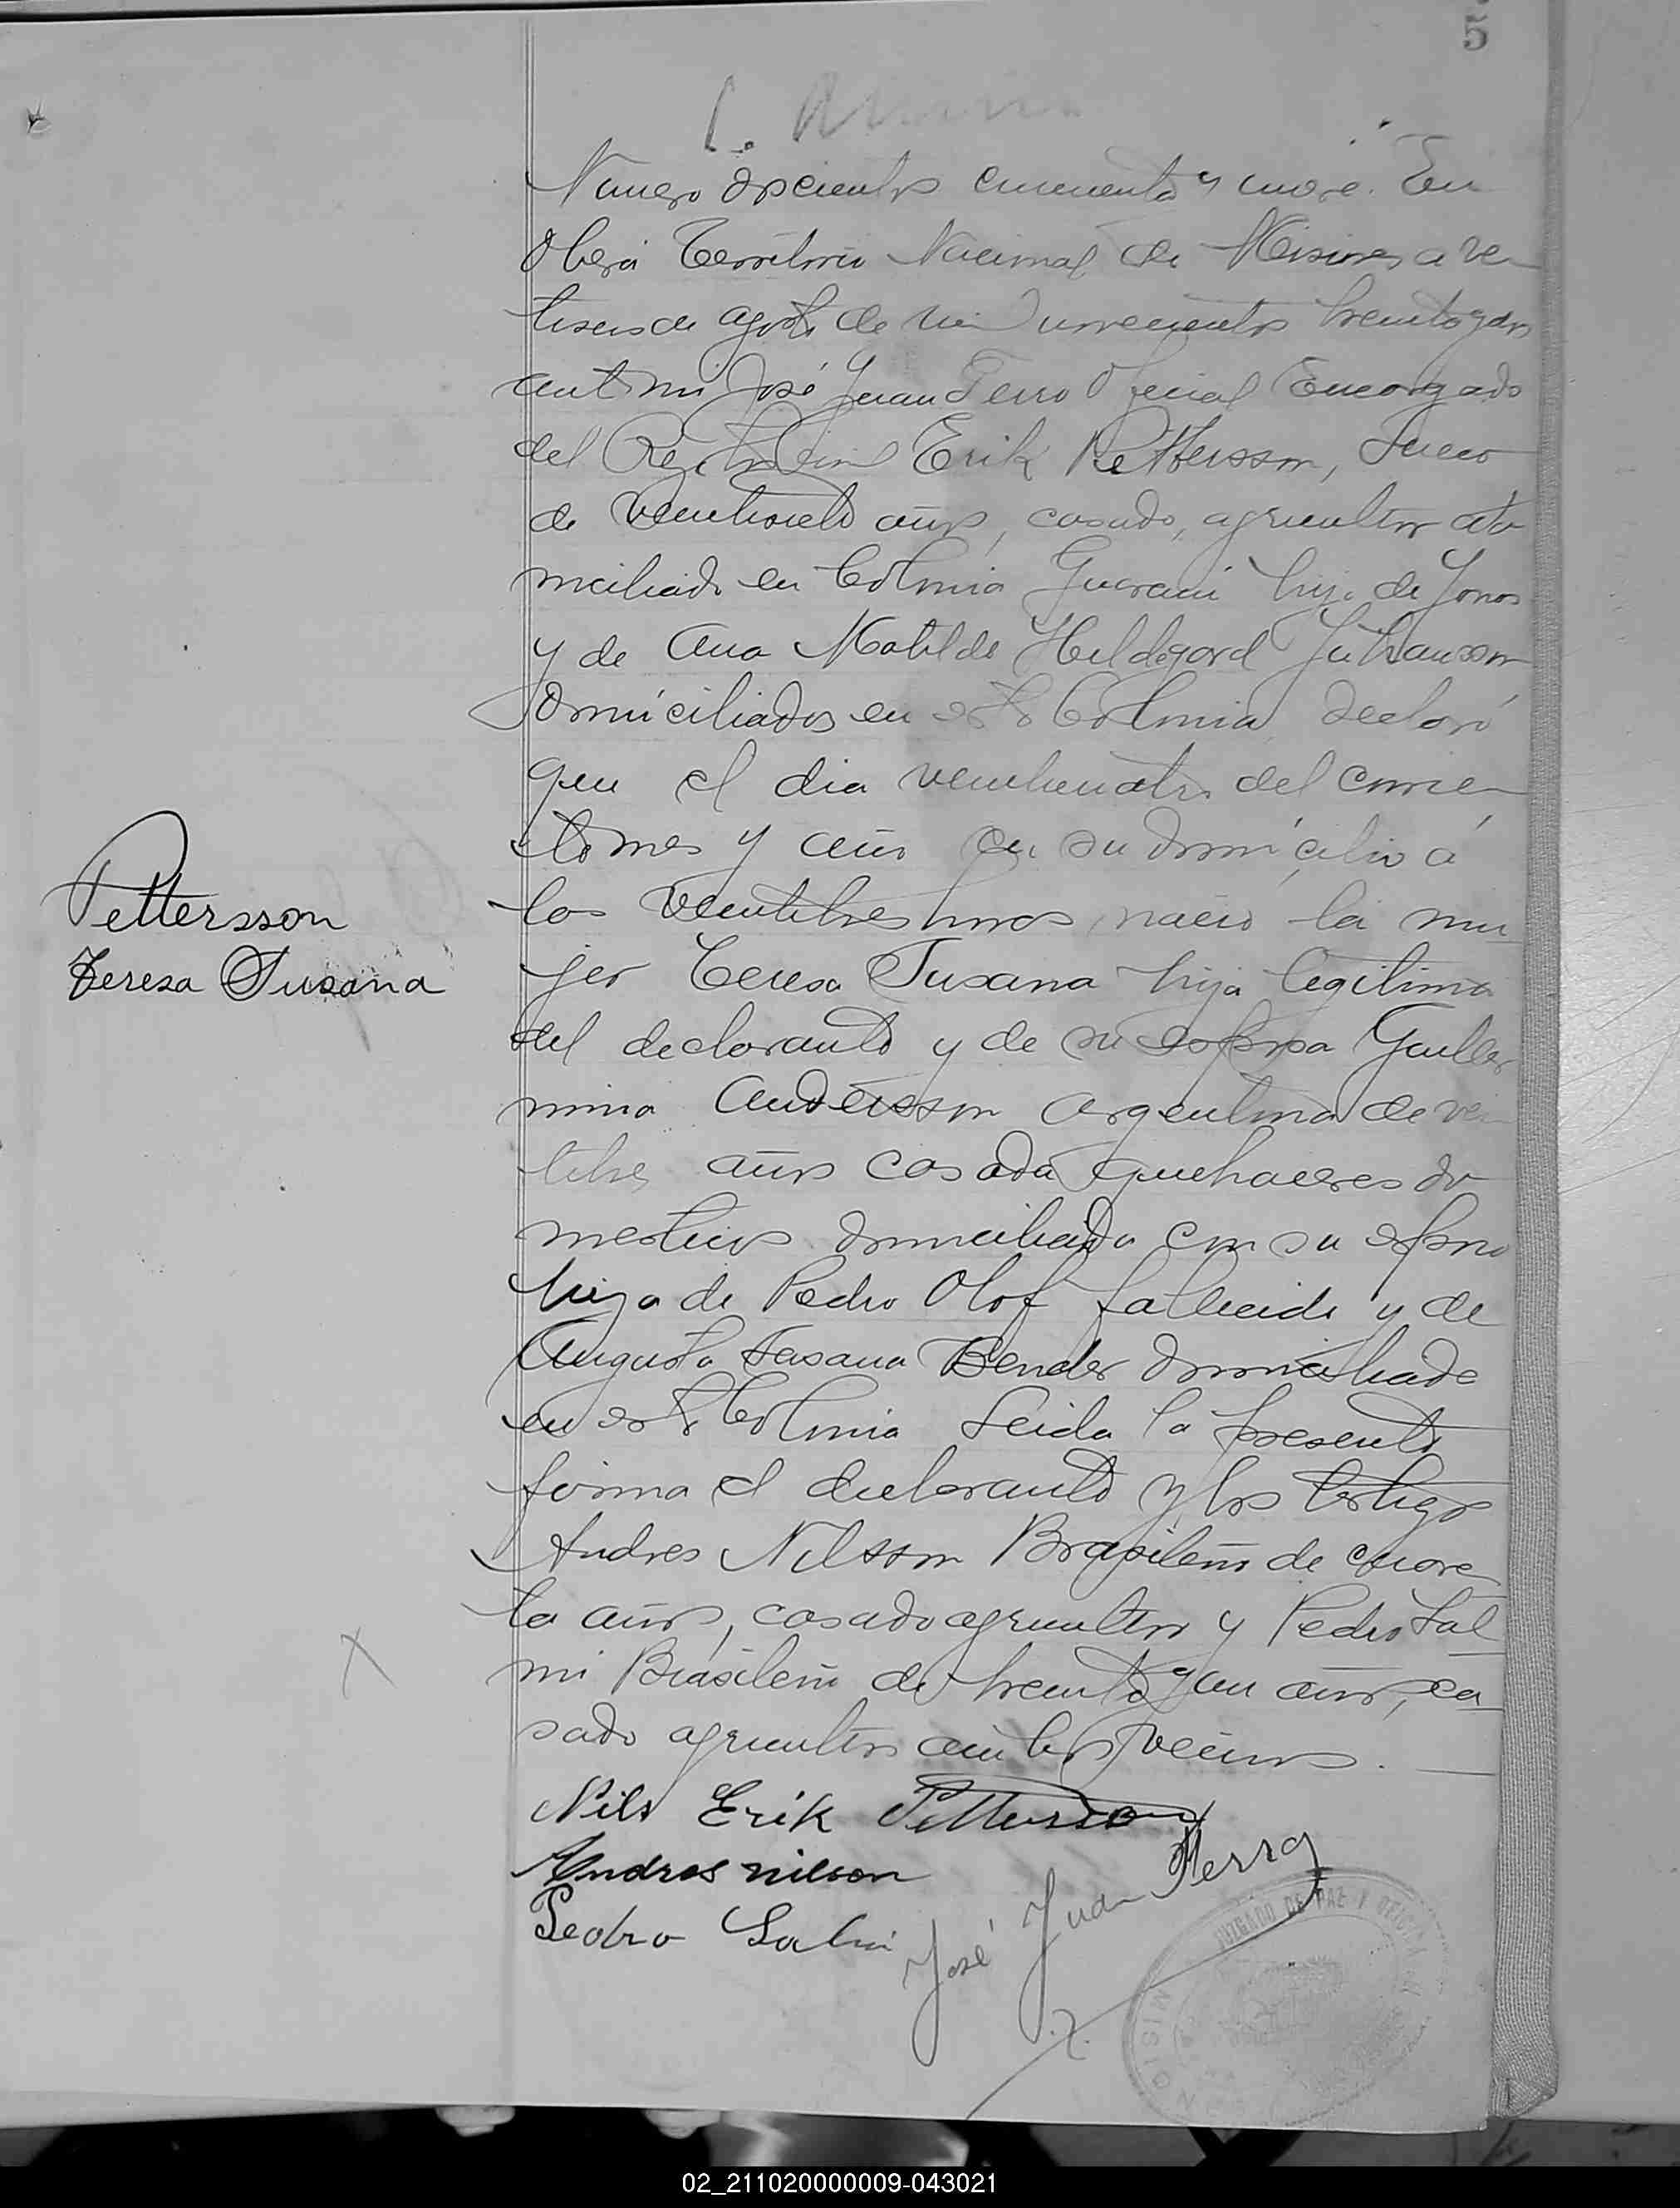 5
Numero doscientos cincuenta y nueve. En
Oberá Territorio Nacional de Misiones a vein
tiseis de agosto de mil novecientos treinta y dos
ante mi José Juan Ferro Oficial Encargado
del Registro Civil Erik Pettersson, Sueco
de veintisiete años, casado, agricultor do
miciliado en Colonia Guarani hijo de Jonas
y de Ana Matilde Hildegard Juhansson
domiciliados en esta Colonia, declaró
que el dia veinticuatro del corrien
te mes y año en su domicilio á
las veintitres horas, nació la mu
jer Teresa Susana hija legitima
del declarante y de su esposa Guiller
mina Andersson Argentina de vein
titres años casada quehaceres do
mesticos domiciliada con su esposo
hija de Pedro Olof fallecido y de
Augusta Susana Bender domiciliada
en esta Colonia Leida la presente
firma el declarante y los testigos
Andres Nilsson Brasileño de cuaren
ta años, casado agricultor y Pedro Sal
mi Brasileño de treinta y un años, ca
sado agricultor ambos vecinos.
Pettersson
Teresa Susana
Nils Erik Pettersson
Andres nilson
Pedro Salmi
José Juan Ferro
JUZGADO DE PAZ Y OFICINA
02_211020000009-043021